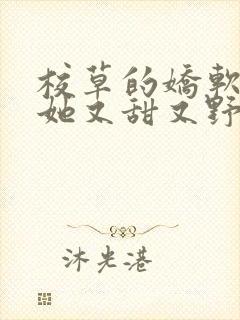 校草的嬌軟
她又甜又野
沐光港